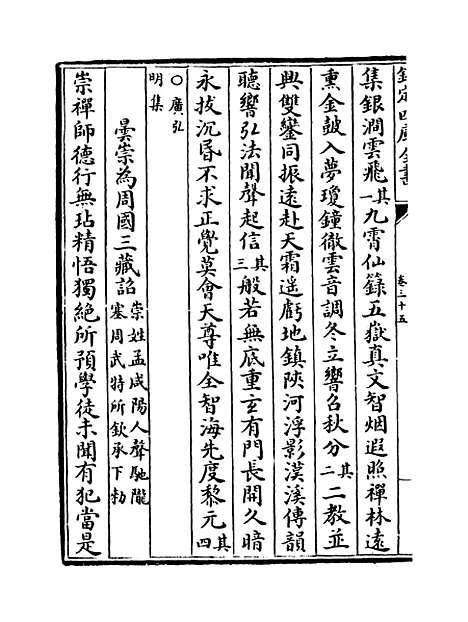 欽定四庫全書
卷三十五
集銀澗雲飛其一九霄仙籙五嶽真文智烟遐照禪林遠
熏金鼓入夢瓊鐘徹雲音調冬立響召秋分其二二教並
興雙鑾同振遠赴天霜遥虧地鎮陝河浮影漢溪傳韻
聽響弘法聞聲起信其三般若無底重玄有門長開久暗
永拔沉昏不求正覺莫會天尊唯全智海先度黎元其四
○廣弘
明集
曇崇為周國三藏詔崇姓孟咸陽人聲馳隴
塞周武特所欽承下勅
崇禪師德行無玷精悟獨絶所預學徒未聞有犯當是